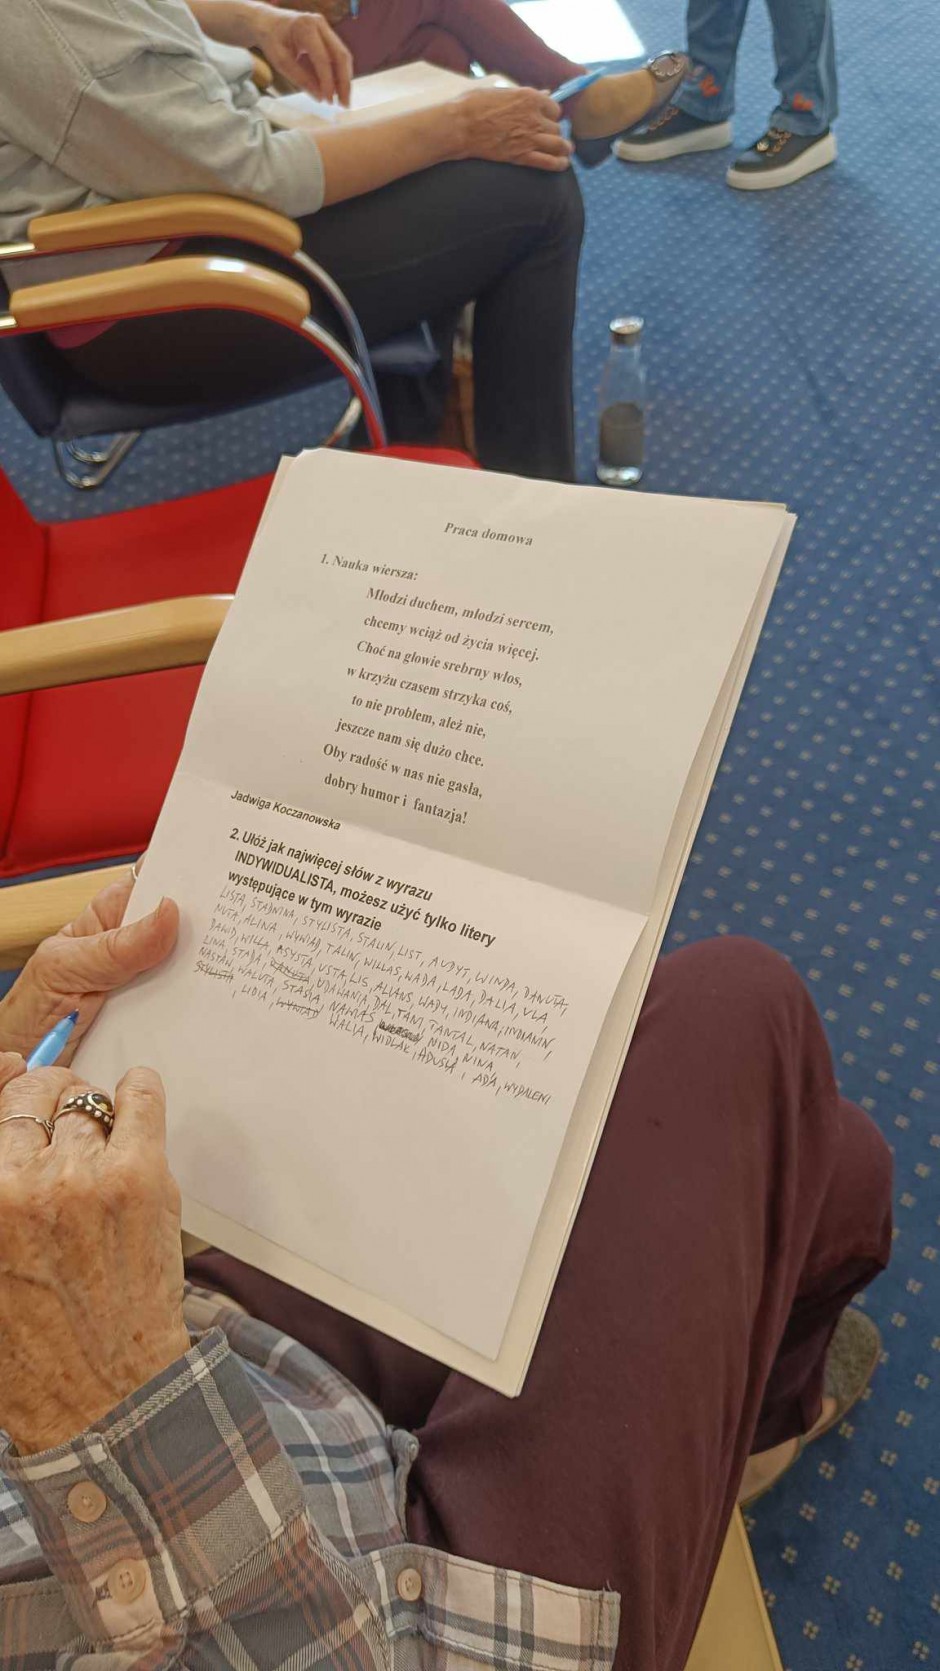 Praca domowa
1. Nauka wiersza:
Młodzi duchem, młodzi sercem,
chcemy wciąż od życia więcej.
Choć na głowie srebrny włos,
w krzyżu czasem strzyka coś,
to nie problem, ależ nie,
jeszcze nam się dużo chce.
Oby radość w nas nie gasła,
dobry humor i fantazja!
Jadwiga Koczanowska
2. Ułóż jak najwięcej słów z wyrazu
INDYWIDUALISTA, możesz użyć tylko litery
występujące w tym wyrazie
LISTA, STADNINA, STYLISTA, STALIN, LIST, AUDYT, WINDA, DANUTA
NUTA, ALINA, WYWIAD, TALIN, WILLAS, WADA, LADA, DALIA, VLA,
DAWID, WILLA, ASYSTA, USTA, LIS, ALIANS, WADY, INDIANA, INDIANIN,
LINA, STADA, UDAWANIA, DAL, TAM, TANTAL, NATAN,
NASTAN, WALUTA, STASIA, NAWIAS, NIDA, NINA,
STYLISTA, LIDIA, WYWIAD, WALIA, WIDLAK, ADUSIA, ADA, WYDALENI